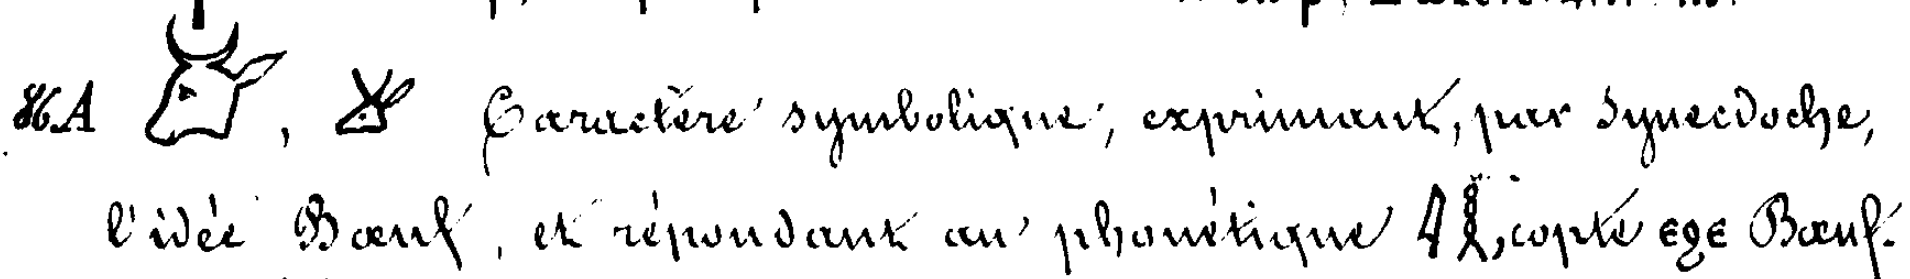 86A 𓃾, 𓄀 Caractère symbolique, exprimant, par synecdoche,
l'idée Bœuf, et répondant au phonétique 𓇋𓎛, copte ⲉϩⲉ Bœuf.